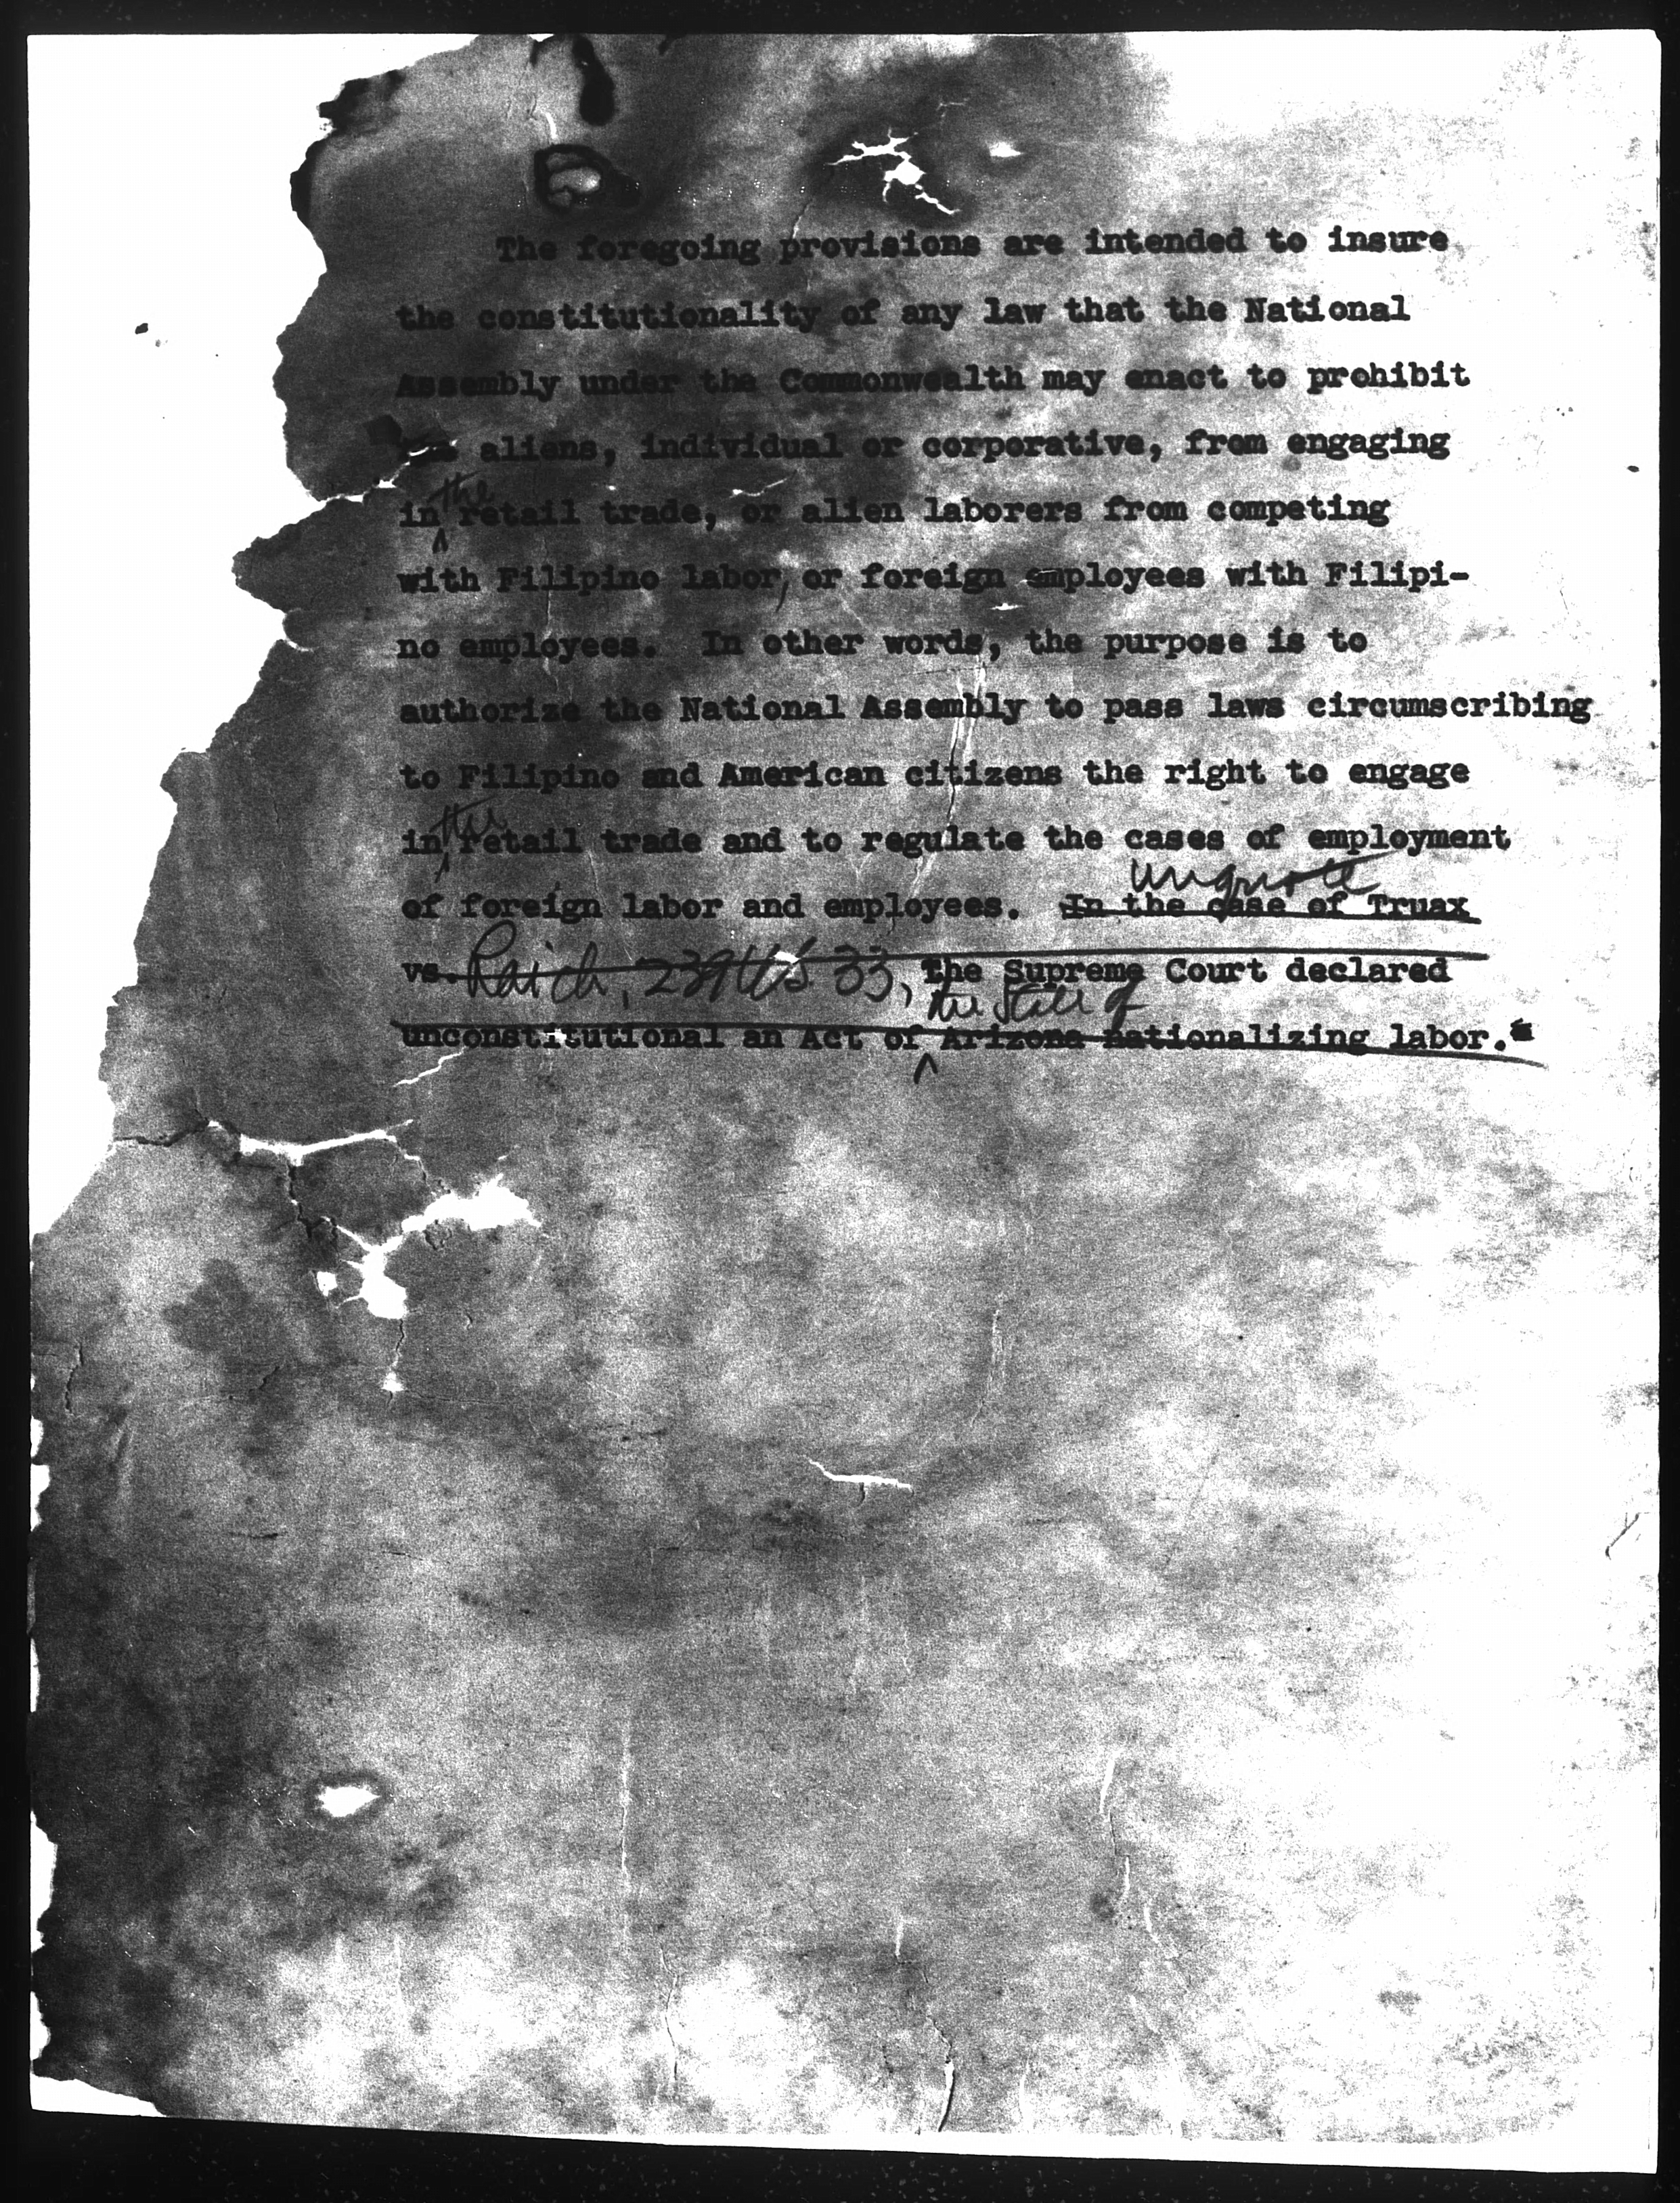 The foregoing provisions are intended to insure
the constitutionality of any law that the National
Assembly under the Commonwealth may enact to prohibit
aliens, individual or corporative, from engaging
the
in retail trade, or alien laborers from competing
with Filipino labor, or foreign employees with Filipi-
no employees. In other words, the purpose is to
authorize the National Assembly to pass laws circumscribing
to Filipino and American citizens the right to engage
the
in retail trade and to regulate the cases of employment
unquote
of foreign labor and employees. In the case of Truax
vs. Raich, 239 U.S. 33, the Supreme Court declared
the State of
unconstitutional an Act of Arizona nationalizing labor."